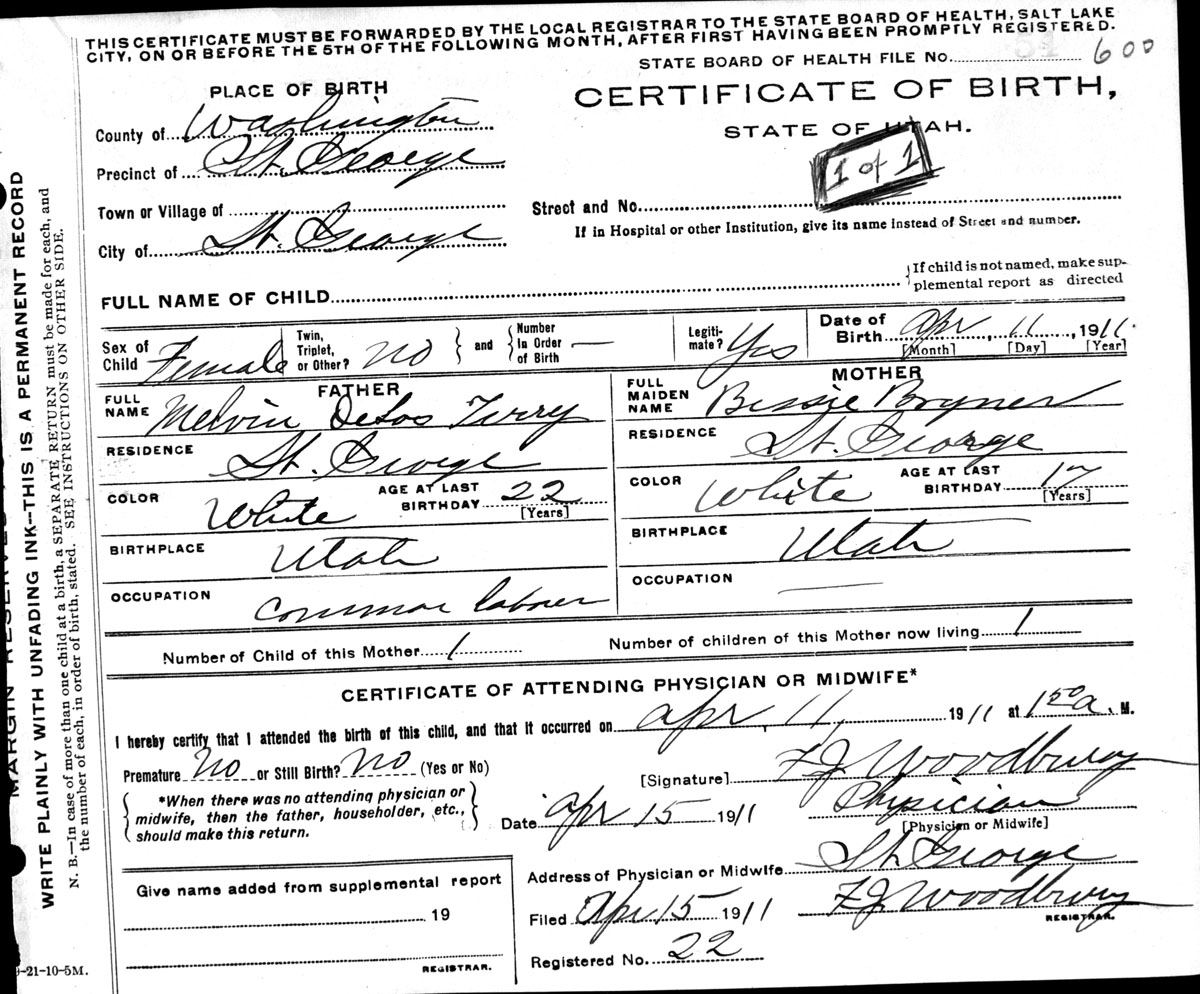 THIS CERTIFICATE MUST BE FORWARDED BY THE LOCAL REGISTRAR TO THE STATE BOARD OF HEALTH, SALT LAKE
CITY, ON OR BEFORE THE 5TH OF THE FOLLOWING MONTH, AFTER FIRST HAVING BEEN PROMPTLY REGISTERED.
STATE BOARD OF HEALTH FILE No. 600
PLACE OF BIRTH
CERTIFICATE OF BIRTH,
STATE OF UTAH.
1 of 1
County of Washington
Precinct of St. George
Town or Village of
City of St. George
Street and No.
If in Hospital or other Institution, give its name instead of Street and number.
FULL NAME OF CHILD
{If child is not named, make sup-
plemental report as directed
Sex of Child Female
Twin, Triplet, or Other? No } and { Number In Order of Birth —
Legiti-mate? Yes
Date of Birth Apr 11, 1911
[Month] [Day] [Year]
FATHER
FULL NAME Melvin DeLos Terry
RESIDENCE St. George
COLOR White AGE AT LAST BIRTHDAY 22 [Years]
BIRTHPLACE Utah
OCCUPATION Common laborer
MOTHER
FULL MAIDEN NAME Bessie Bryner
RESIDENCE St. George
COLOR White AGE AT LAST BIRTHDAY 17 [Years]
BIRTHPLACE Utah
OCCUPATION —
Number of Child of this Mother 1 Number of children of this Mother now living 1
CERTIFICATE OF ATTENDING PHYSICIAN OR MIDWIFE*
I hereby certify that I attended the birth of this child, and that it occurred on Apr, 11, 1911 at 1 50 a. M.
Premature No or Still Birth? No (Yes or No)
[Signature] F J Woodbury
*When there was no attending physician or
midwife, then the father, householder, etc.,
should make this return.
Date Apr 15 1911
Physician
[Physician or Midwife]
Address of Physician or Midwife St. George
Give name added from supplemental report
19
REGISTRAR.
Filed Apr 15 1911
F J Woodbury
REGISTRAR.
Registered No. 22
9-21-10-5M.
WRITE PLAINLY WITH UNFADING INK--THIS IS A PERMANENT RECORD
N. B.—In case of more than one child at a birth, a SEPARATE RETURN must be made for each, and
the number of each, in order of birth, stated. SEE INSTRUCTIONS ON OTHER SIDE.